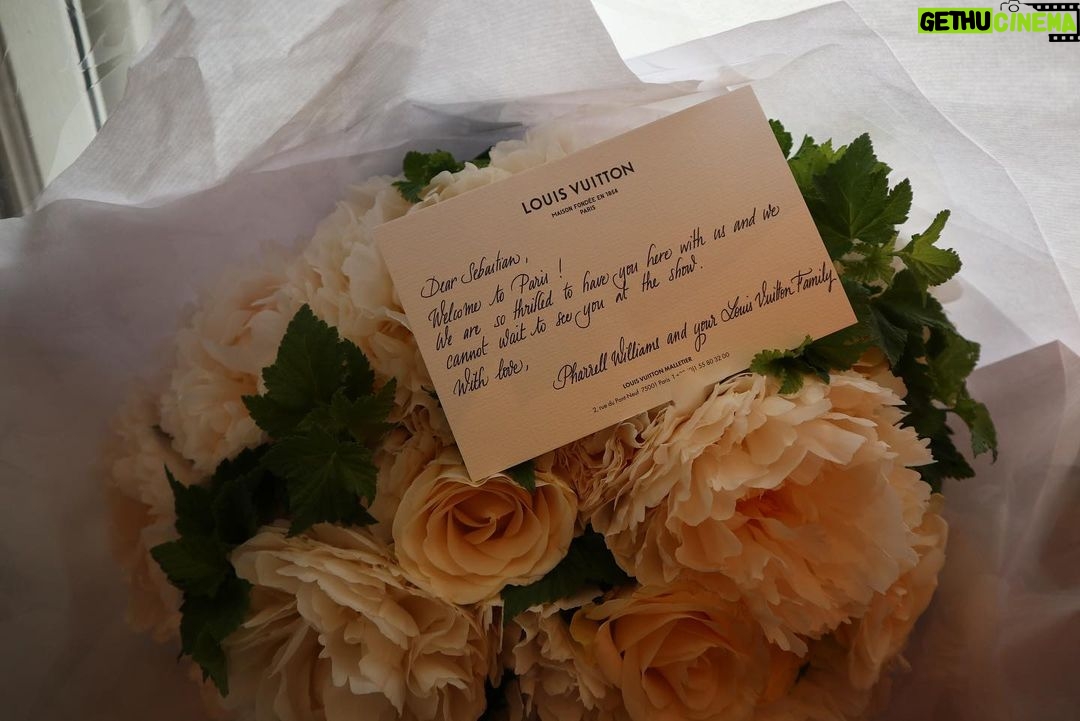 GETHUCINEMA
LOUIS VUITTON
MAISON FONDÉE EN 1854
PARIS
Dear Sebastian,
Welcome to Paris !
We are so thrilled to have you here with us and we
cannot wait to see you at the show.
With love,
Pharrell Williams and your Louis Vuitton Family
LOUIS VUITTON MALLETIER
2, rue du Pont Neuf 75001 Paris 55 80 32 00